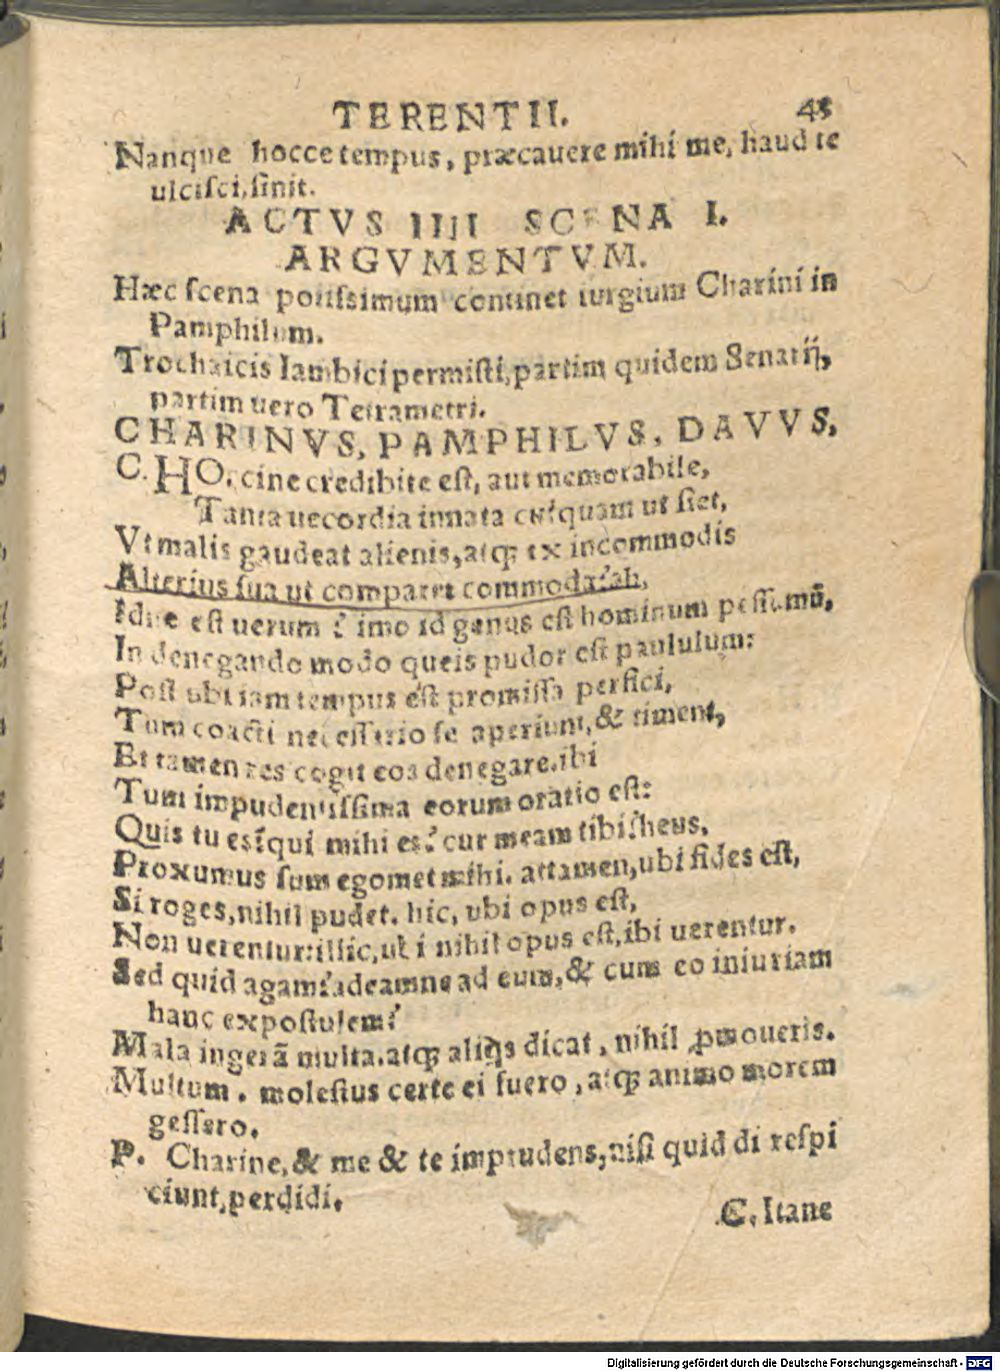 TERENTII. 45
Nanque hocce tempus, præcauere mihi me, haud te
ulciſci, ſinit.
ACTVS IIII SCENA I.
ARGVMENTVM.
Hæc ſcena potiſsimum continet iurgium Charini in
Pamphilum.
Trochaicis Iambici permiſti, partim quidem Senarij,
partim uero Tetrametri.
CHARINVS, PAMPHILVS, DAVVS,
C. HO, cine credibile eſt, aut memorabile,
Tanta uecordia innata cuiquam ut ſiet,
Vt malis gaudeat alienis, atq; ex incommodis
Alterius ſua ut comparet commoda? ah,
Idne eſt uerum? imo id genus eſt hominum peſſimũ,
In denegando modo queis pudor eſt paululum:
Poſt ubi iam tempus eſt promiſſa perfici,
Tum coacti neceſſario ſe aperiunt, & timent,
Et tamen res cogit eos denegare. ibi
Tum impudentiſſima eorum oratio eſt:
Quis tu es? qui mihi es? cur meam tibi? heus,
Proxumus ſum egomet mihi. attamen, ubi fides eſt,
Si roges, nihil pudet. hic, ubi opus eſt,
Non uerentur: illic, ubi nihil opus eſt, ibi uerentur.
Sed quid agam? adeamne ad eum, & cum eo iniuriam
hanc expoſtulem?
Mala ingerã multa. atq; aliq̃s dicat, nihil ꝓmoueris.
Multum. moleſtus certe ei fuero, atq; animo morem
geſſero.
P. Charine, & me & te imprudens, niſi quid di reſpi
ciunt, perdidi.
C. Itane
Digitalisierung gefördert durch die Deutsche Forschungsgemeinschaft - DFG